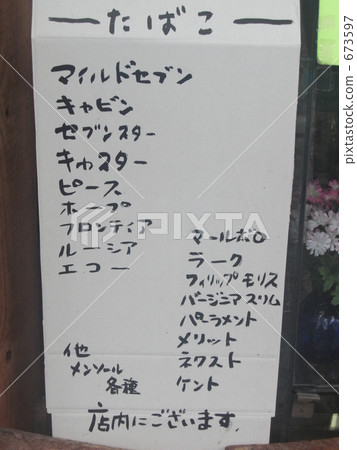 たばこ
マイルドセブン
キャビン
セブンスター
キャスター
ピース
ホープ
フロンティア
ルーシア
エコー
マールボロ
ラーク
フィリップモリス
バージニアスリム
パーラメント
メリット
ネクスト
ケント
他
メンソール
各種
店内にございます.
PIXTA
pixtastock.com - 673597